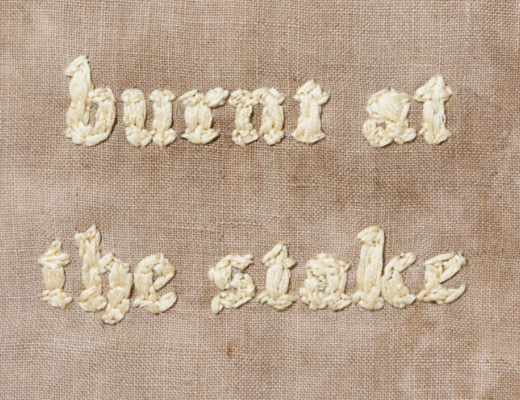 burnt at
the stake